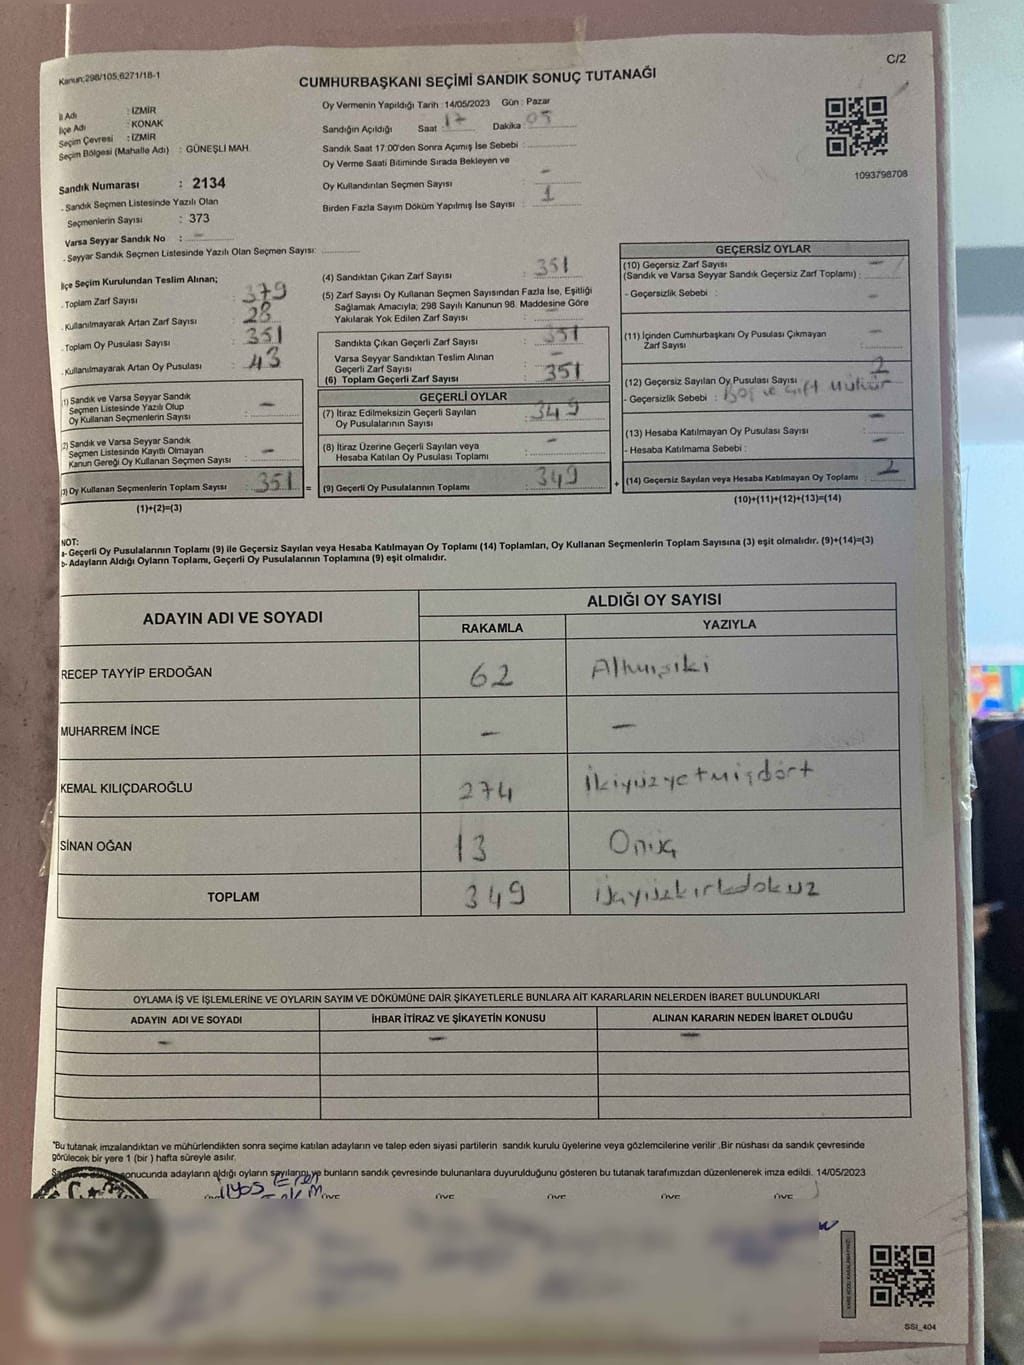 Kanun;298/105,6271/18-1
C/2
CUMHURBAŞKANI SEÇİMİ SANDIK SONUÇ TUTANAĞI
İl Adı : İZMİR
İlçe Adı : KONAK
Seçim Çevresi : İZMİR
Seçim Bölgesi (Mahalle Adı) : GÜNEŞLİ MAH.
Sandık Numarası : 2134
- Sandık Seçmen Listesinde Yazılı Olan
Seçmenlerin Sayısı : 373
Varsa Seyyar Sandık No : -
- Seyyar Sandık Seçmen Listesinde Yazılı Olan Seçmen Sayısı:
Oy Vermenin Yapıldığı Tarih :14/05/2023 Gün : Pazar
Sandığın Açıldığı Saat : 17 Dakika : 05
Sandık Saat 17:00'den Sonra Açımış İse Sebebi :
Oy Verme Saati Bitiminde Sırada Bekleyen ve
Oy Kullandırılan Seçmen Sayısı : -
Birden Fazla Sayım Döküm Yapılmış İse Sayısı : 1
1093798708
İlçe Seçim Kurulundan Teslim Alınan;
- Toplam Zarf Sayısı : 379
- Kullanılmayarak Artan Zarf Sayısı : 28
- Toplam Oy Pusulası Sayısı : 351
- Kullanılmayarak Artan Oy Pusulası : 43
(1) Sandık ve Varsa Seyyar Sandık
Seçmen Listesinde Yazılı Olup
Oy Kullanan Seçmenlerin Sayısı : -
(2) Sandık ve Varsa Seyyar Sandık
Seçmen Listesinde Kayıtlı Olmayan
Kanun Gereği Oy Kullanan Seçmen Sayısı : -
(3) Oy Kullanan Seçmenlerin Toplam Sayısı : 351 =
(1)+(2)=(3)
(4) Sandıktan Çıkan Zarf Sayısı : 351
(5) Zarf Sayısı Oy Kullanan Seçmen Sayısından Fazla İse, Eşitliği
Sağlamak Amacıyla; 298 Sayılı Kanunun 98. Maddesine Göre
Yakılarak Yok Edilen Zarf Sayısı :
Sandıkta Çıkan Geçerli Zarf Sayısı : 351
Varsa Seyyar Sandıktan Teslim Alınan
Geçerli Zarf Sayısı : -
(6) Toplam Geçerli Zarf Sayısı : 351
GEÇERLİ OYLAR
(7) İtiraz Edilmeksizin Geçerli Sayılan
Oy Pusulalarının Sayısı : 349
(8) İtiraz Üzerine Geçerli Sayılan veya
Hesaba Katılan Oy Pusulası Toplamı : -
(9) Geçerli Oy Pusulalarının Toplamı : 349 +
GEÇERSİZ OYLAR
(10) Geçersiz Zarf Sayısı
(Sandık ve Varsa Seyyar Sandık Geçersiz Zarf Toplamı) : -
- Geçersizlik Sebebi : -
(11) İçinden Cumhurbaşkanı Oy Pusulası Çıkmayan
Zarf Sayısı : -
(12) Geçersiz Sayılan Oy Pusulası Sayısı : 2
- Geçersizlik Sebebi : Boş ve Çift Mühür
(13) Hesaba Katılmayan Oy Pusulası Sayısı : -
- Hesaba Katılmama Sebebi : -
(14) Geçersiz Sayılan veya Hesaba Katılmayan Oy Toplamı : 2
(10)+(11)+(12)+(13)=(14)
NOT:
a- Geçerli Oy Pusulalarının Toplamı (9) ile Geçersiz Sayılan veya Hesaba Katılmayan Oy Toplamı (14) Toplamları, Oy Kullanan Seçmenlerin Toplam Sayısına (3) eşit olmalıdır. (9)+(14)=(3)
b- Adayların Aldığı Oyların Toplamı, Geçerli Oy Pusulalarının Toplamına (9) eşit olmalıdır.
ADAYIN ADI VE SOYADI ALDIĞI OY SAYISI
RAKAMLA YAZIYLA
RECEP TAYYİP ERDOĞAN 62 Altmışiki
MUHARREM İNCE - -
KEMAL KILIÇDAROĞLU 274 İkiyüzyetmişdört
SİNAN OĞAN 13 Onüç
TOPLAM 349 Üçyüzkırkdokuz
OYLAMA İŞ VE İŞLEMLERİNE VE OYLARIN SAYIM VE DÖKÜMÜNE DAİR ŞİKAYETLERLE BUNLARA AİT KARARLARIN NELERDEN İBARET BULUNDUKLARI
ADAYIN ADI VE SOYADI İHBAR İTİRAZ VE ŞİKAYETİN KONUSU ALINAN KARARIN NEDEN İBARET OLDUĞU
- - -
"Bu tutanak imzalandıktan ve mühürlendikten sonra seçime katılan adayların ve talep eden siyasi partilerin sandık kurulu üyelerine veya gözlemcilerine verilir .Bir nüshası da sandık çevresinde
görülecek bir yere 1 (bir ) hafta süreyle asılır.
sonucunda adayların aldığı oyların sayılarını ve bunların sandık çevresinde bulunanlara duyurulduğunu gösteren bu tutanak tarafımızdan düzenlenerek imza edildi. 14/05/2023
ÜYE ÜYE ÜYE ÜYE ÜYE
SSI_404